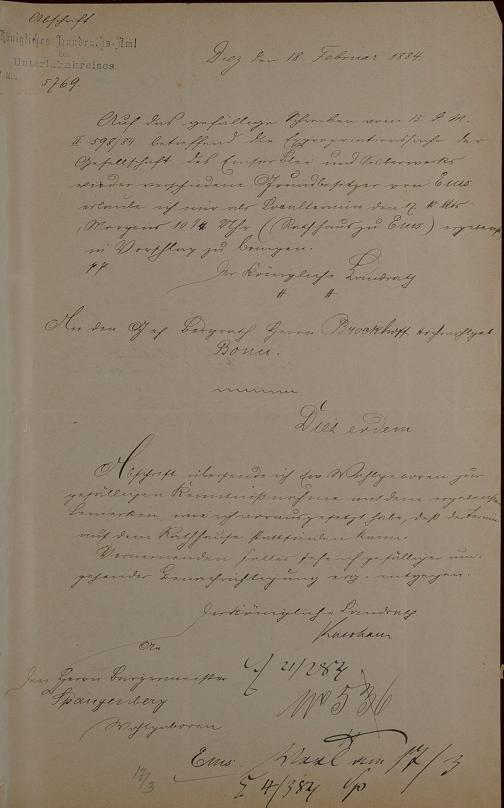 Abschrift
Königliches Landraths-Amt
des
Unterlahnkreises.
J. No.
5769.
Diez den 18. Februar 1884.
Auf das gefällige Schreiben vom 12. d. M.
II 598/84 betreffend die Expropriationssache der
Gesellschaft des Emser Blei und Silberwerks
wieder verschiedene Grundbesitzer von Ems
erlaube ich mir als Localtermin den 17. k. Mts.
Morgens 10 1/4 Uhr (Rathhaus zu Ems) ergebenst
in Vorschlag zu bringen.
pp
Der Königliche Landrath
An den Geh. Bergrath Herrn Brockhoff
Bonn.
Diez eodem
Abschrift übersende ich Ew. Wohlgeboren zur
gefälligen Kenntnißnahme mit dem ergebensten
Bemerken, wie ich vorausgesetzt habe, daß der Termin
auf dem Rathhause stattfinden kann.
Verneinenden Falles sehe ich gefälliger um-
gehender Benachrichtigung erg. entgegen.
Der Königliche Landrath
An
den Herrn Bürgermeister
Spangenberg
Wohlgeboren
Ems.
21/2 84
No 536
am 17/3
4/3 84
17/3